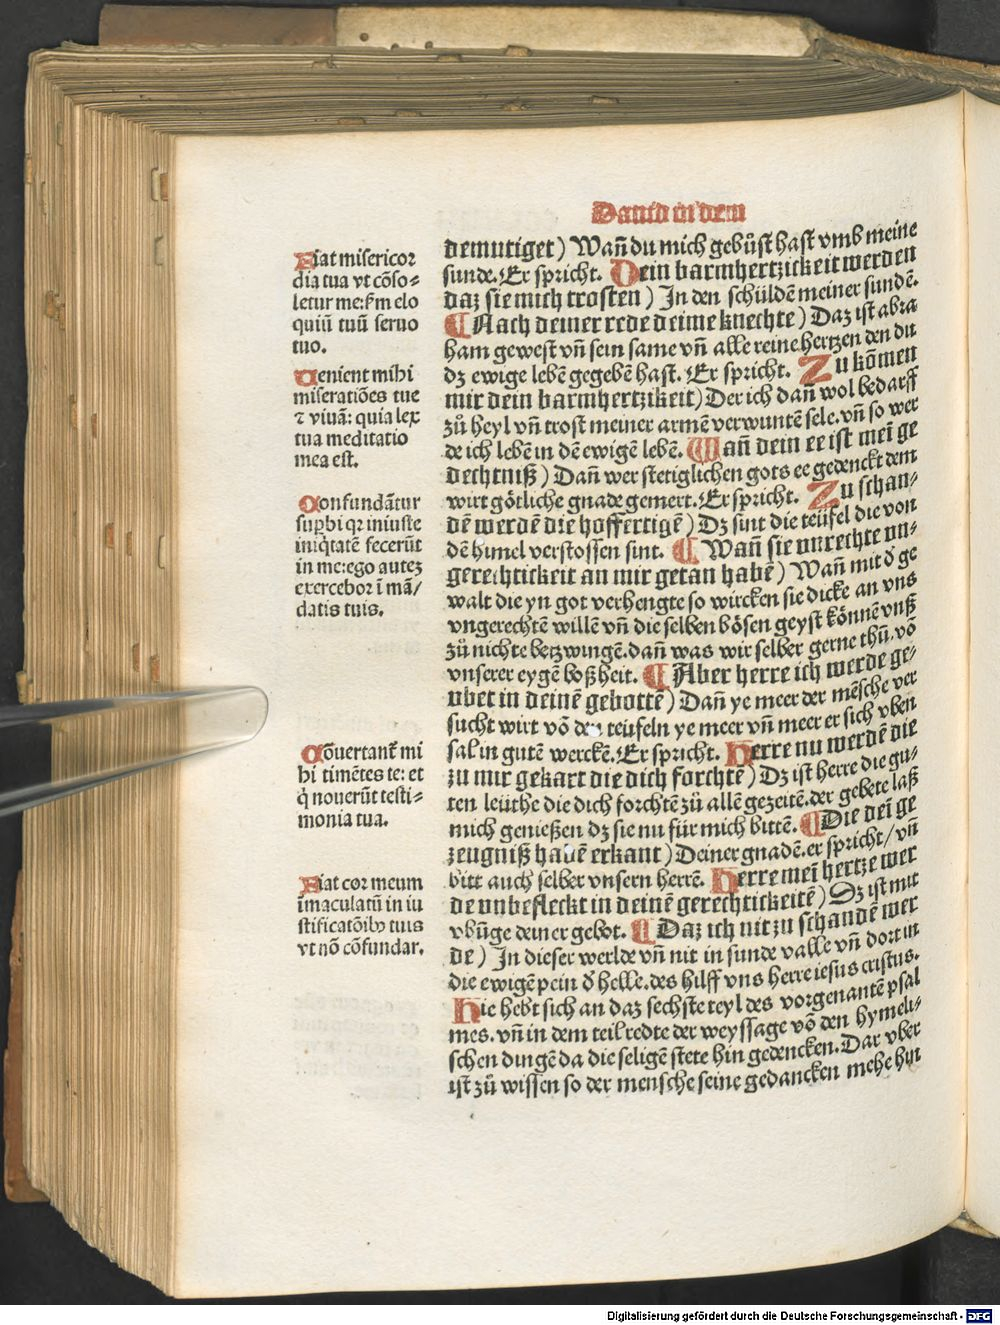 Dauid in dem
Fiat misericor
dia tua vt cõso⸗
letur me: ẜm elo
quiũ tuũ seruo
tuo.
Uenient mihi
miseratiões tue
⁊ viuã: quia lex
tua meditatio
mea est.
Confundãtur
suꝑbi qꝛ iniuste
iniq̃tatẽ fecerũt
in me: ego autez
exercebor ĩ mã/
datis tuis.
Cõuertant̃ mi
hi timẽtes te: et
q̃ nouerũt testi⸗
monia tua.
Fiat cor meum
ĩmaculatũ in iu
stificatõibꝰ tuis
vt nõ cõfundar.
demutiget) Wañ du mich gebůst hast vmb meine
sunde. Er spricht. Dein barmhertzickeit werden
daz sie mich trosten) In den schuldẽ meiner sundẽ.
¶ Nach deiner rede deime knechte) Daz ist abra
ham gewest vñ sein same vñ alle reine hertzen den du
dz ewige lebẽ gegebẽ hast. Er spricht. Zu kõmen
mir dein barmhertzikeit) Der ich dañ wol bedarff
zů heyl vñ trost meiner armẽ verwuntẽ sele. vñ so wer
de ich lebẽ in dẽ ewigẽ lebẽ. Wañ dein ee ist meĩ ge
dechtniß) Dañ wer stetiglichen gots ee gedenckt dem
wirt götliche gnade gemert. Er spricht. Zu schan⸗
dẽ werdẽ die hoffertigẽ) Dz sint die teüfel die von
dẽ himel verstossen sint. ¶ Wañ sie vnrechte vn⸗
gerechtickeit an mir getan habẽ) Wañ mit ď ge
walt die yn got verhengte so wircken sie dicke an vns
vngerechtẽ willẽ vñ die selben bösen geyst könnẽ vnß
zů nichte betzwingẽ. dañ was wir selber gerne thũ. võ
vnserer eygẽ boßheit. ¶ Aber herre ich werde ge⸗
vbet in deinẽ gebottẽ) Dañ ye meer der mẽsche ver
sucht wirt võ den teüfeln ye meer vñ meer er sich vben
sal in gutẽ werckẽ. Er spricht. Herre nu werdẽ die
zu mir gekart die dich forchtẽ) Dz ist herre die gu⸗
ten leüthe die dich forchtẽ zů allẽ gezeitẽ. der gebete laß
mich genießen dz sie nu für mich bittẽ. ¶ Die deĩ ge
zeugniß habẽ erkant) Deiner gnadẽ. er spricht/ vñ
bitt auch selber vnsern herrẽ. Herre meĩ hertze wer
de vnbefleckt in deinẽ gerechtickeitẽ) Dz ist mit
vbũge deiner gebot. ¶ Daz ich nit zu schandẽ wer
de) In dieser werlde vñ nit in sunde valle vñ dort in
die ewigẽ pein ď helle. des hilff vns herre iesus cristus.
Hie hebt sich an daz sechste teyl des vorgenantẽ psal
mes. vñ in dem teil redte der weyssage võ den hymeli⸗
schen dingẽ da die seligẽ stete hin gedencken. Dar vber
ist zů wissen so der mensche seine gedancken mehe hin
Digitalisierung gefördert durch die Deutsche Forschungsgemeinschaft - DFG